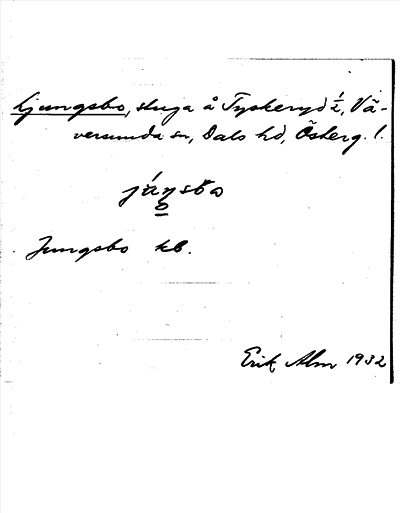 Ljungsbo, stuga å Tyskeryd ½, Vä-
versunda sn, Dals hd, Österg. l.
Jungsbo kb.
Erik Alm 1932